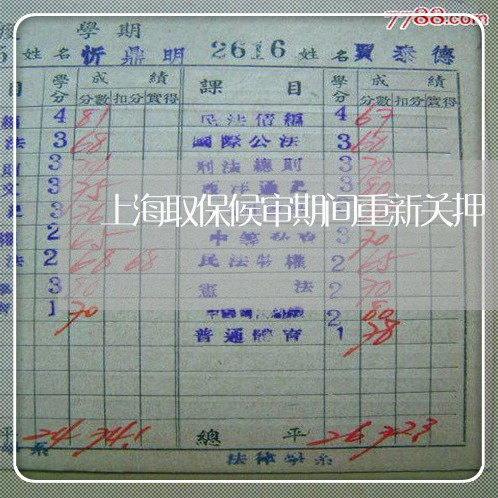 7788.com
學期
姓名 忻鼎明 2616 姓名 賈泰德
目 學分 成績 課目 學分 成績
分數 扣分 實得 分數 扣分 實得
4 81 民法債編 4 67
法 3 68 國際公法 3 60
3 刑法總則 3 70
文 3 75 3 80
3 76 3
2 65 3 70
法 2 68 68 民法物權 2 65
3 80 憲法 2 70
1 70 2 80
普通體育 1 78
上海取保候审期间重新关押
平 24 74.1 總平 26 72.3
系 法律學系